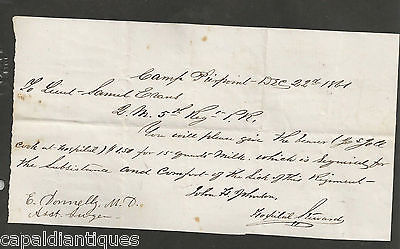 Camp Pierpont - Dec 22nd 1861
To Lieut - Samuel Evans
Q. M. 5th Reg - P. R.
You will please give the bearer
Cook at Hospital $1.50 for 15 quarts Milk. which is required for
the Subsistance and Comfort of the Sick of this Regiment -
John F. Johnston,
Hospital Steward
E. Donnelly, M. D.
Asst. Surge -
capaldiantiques